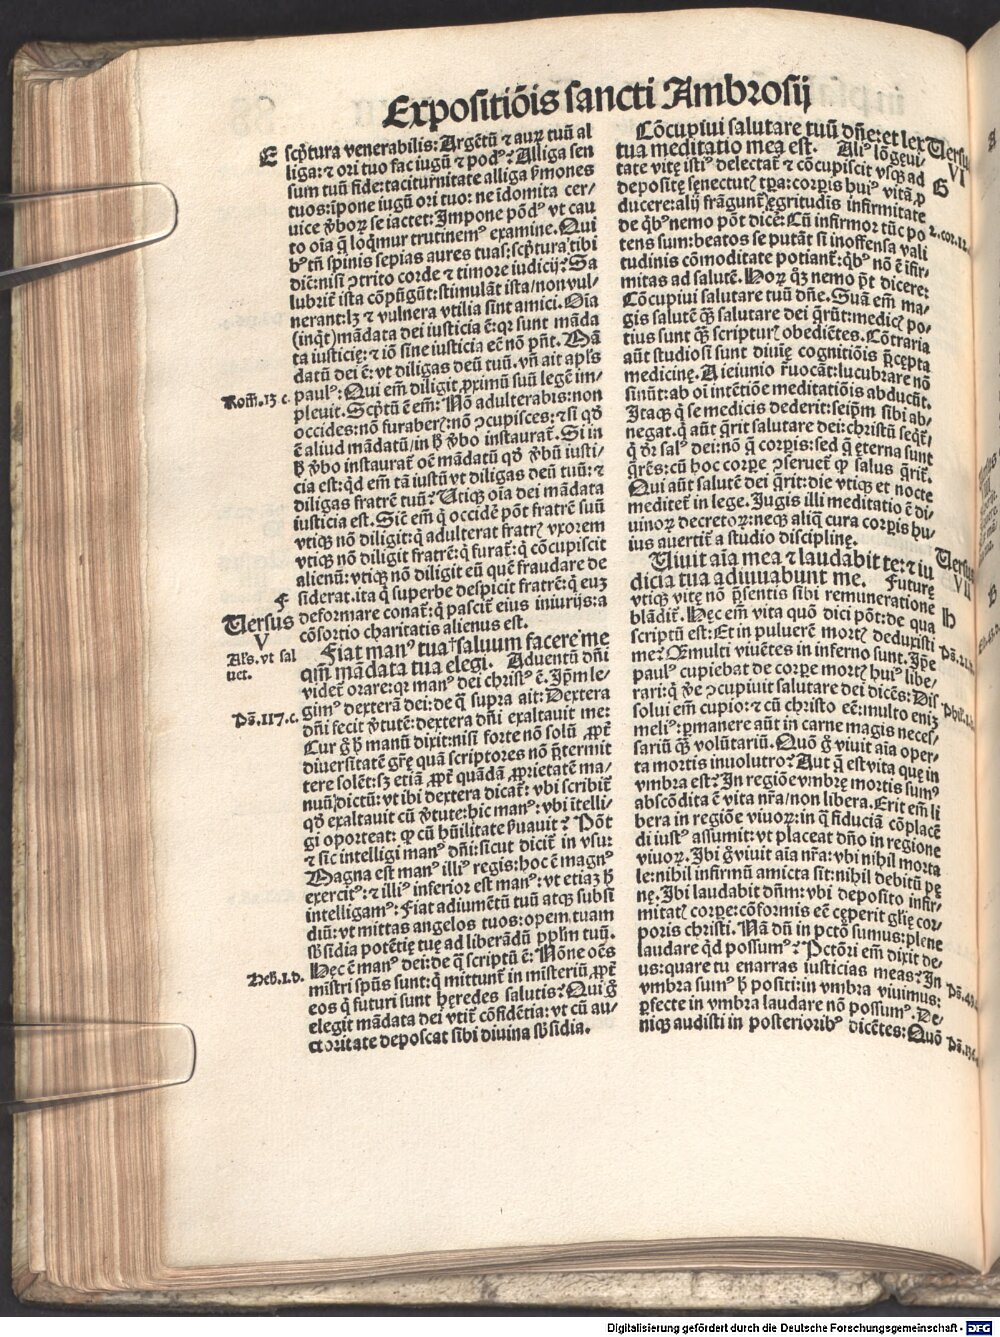 Expositiõis sancti Ambrosij
E scp̃tura venerabilis: Argẽtũ ⁊ auꝝ tuũ al
liga: ⁊ ori tuo fac iugũ ⁊ pod᷒? Alliga sen
sum tuũ fide: taciturnitate alliga ỹmones
tuos: ĩpone iugũ ori tuo: ne ĩdomita cer-
uice ỹboꝝ se iactet: Impone põd᷒ vt cau
to oĩa q̃ loq̃mur trutinem᷒ examine. Qui
b᷒ tñ spinis sepias aures tuas: scp̃tura tibi
diẽ: nisi ꝯtrito corde ⁊ timore iudicij? Sa
lubrit̃ ista cõpũgũt: stimulãt ista/non vul-
nerant: lꝫ ⁊ vulnera vtilia sint amici. Oĩa
(inq̃t) mãdata dei iusticia ẽ: qꝛ sunt mãda
ta iusticię: ⁊ iõ sine iusticia eẽ nõ pñt. Mã
datũ dei ẽ: vt diligas deũ tuũ. vñ ait apl̃s
Rom̃. 13 c. paul᷒: Qui em̃ diligit ꝓximũ suũ legẽ im-
pleuit. Scp̃tũ ẽ em̃: Nõ adulterabis: non
occides: nõ furaberꝭ: nõ ꝯcupisces: ⁊ si qđ
ẽ aliud mãdatũ/in ħ ỹbo instaurat̃. Si in
ħ ỹbo instaurat̃ oẽ mãdatũ qđ ỹbũ iusti-
cia est: qđ em̃ tã iustũ vt diligas deũ tuũ: ⁊
diligas fratrẽ tuũ? Utiqꝫ oĩa dei mãdata
iusticia est. Sicẽ em̃ q̃ occidẽ põt fratrẽ suũ
vtiqꝫ nõ diligit: q̃ adulterat fratrꝭ vxorem
vtiqꝫ nõ diligit fratrẽ: q̃ furat̃: q̃ cõcupiscit
alienũ: vtiqꝫ nõ diligit eũ quẽ fraudare de
F siderat. ita q̃ superbe despicit fratrẽ: q̃ euꝫ
deformare conat̃: q̃ pascit̃ eius iniurijs: a
cõsortio charitatis alienus est.
Versus
V
Fiat man᷒ tua †saluum facere me
Al's. vt sal
uet.
qm̃ mãdata tua elegi. Aduentũ dñi
videt̃ orare: qꝛ man᷒ dei christ᷒ ẽ. Ip̃m le-
gim᷒ dexterã dei: de q̃ supra ait: Dextera
Ps̃. 117. c. dñi fecit ỹtutẽ: dextera dñi exaltauit me:
Cur g̃ ħ manũ dixit: nisi forte nõ solũ ꝓpt̃
diuersitatẽ gr̃ę quã scriptores nõ p̃termit
tere solẽt: sꝫ etiã ꝓpt̃ quãdã ꝓprietatẽ ma-
nuũ dictũ: vt ibi dextera dicat̃: vbi scribit̃
qđ exaltauit cũ ỹtute: hic man᷒: vbi ĩtelli-
gi oporteat: ꝙ cũ hũilitate ỹuauit? Põt
⁊ sic intelligi man᷒ dñi: sicut dicit̃ in vsu:
Magna est man᷒ illi᷒ regis: hoc ẽ magn᷒
exercit᷒: ⁊ illi᷒ inferior est man᷒: vt etiaꝫ ħ
intelligam᷒: Fiat adiumẽtũ tuũ atqꝫ subsi
diũ: vt mittas angelos tuos: opem tuam
sb̃sidia potẽtię tuę ad liberãdũ pp̃lm tuũ.
Heb̃. 1. d. Hęc ẽ man᷒ dei: de q̃ scriptũ ẽ: Nõne oẽs
ministri sp̃us sunt: q̃ mittunt̃ in misteriũ ꝓpt̃
eos q̃ futuri sunt hęredes salutis? Qui g̃
elegit mãdata dei vtit̃ cõfidẽtia: vt cũ au-
ctoritate deposcat sibi diuina sb̃sidia.
Cõcupiui salutare tuũ dñe: et lex
Versus
VI
tua meditatio mea est. Ali᷒ lõgęui/
tate vitę isti᷒ delectat̃ ⁊ cõcupiscit vsqꝫ ad
G
depositę sẽnectutꝭ tp̃a: corpis hui᷒ vitã ꝓ
ducere: alij frãgunt̃ ęgritudis infirmitate
de q̃b᷒ nemo põt dicẽ: Cũ infirmor tũc po 2. cor. 12.
tens sum: beatos se putãt si inoffensa vali
tudinis cõmoditate potiant̃: q̃b᷒ nõ ẽ ifir-
mitas ad salutẽ. Hoꝝ qꝫ nemo p̃t dicere:
Cõcupiui salutare tuũ dñe. Suã em̃ ma-
gis salutẽ qꝫ salutare dei q̃rũt: medicꝭ po-
tius sunt qꝫ scripturꝭ obediẽtes. Cõtraria
aũt studiosi sunt diuię cognitiõis p̃cepta
medicinę. A ieiunio r̃uocãt: lucubrare nõ
sinũt: ab oĩ intẽtiõe meditatiõis abducũt.
Itaqꝫ q̃ se medicis dederit: seip̃m sibi ab-
negat. q̃ aũt q̃rit salutare dei: christũ seq̃t̃-
q̃ dr̃ sal᷒ dei: nõ q̃ corpis: sed q̃ ęterna sunt
q̃rẽs: cũ hoc corpe ꝯseruet̃ ꝙ salus q̃rit̃.
Qui aũt salutẽ dei q̃rit: die vtiqꝫ et nocte
meditet̃ in lege. Jugis illi meditatio ẽ di-
uinoꝝ decretoꝝ: neqꝫ aliq̃ cura corpis hu-
ius auertit̃ a studio discipline.
Viuit aĩa mea ⁊ laudabit te: ⁊ iu
Versus
VII
dicia tua adiuuabunt me. Futurę
vtiqꝫ vitę nõ p̃sentis sibi remuneratione
H
blãdit̃. Hęc em̃ vita quõ dici põt: de qua
scriptũ est: Et in puluerẽ mortꝭ deduxisti
me? Ps̃. 21.
Et multi viuẽtes in inferno sunt. Ip̃e
paul᷒ cupiebat de corpe mortꝭ hui᷒ libe-
rari: q̃ ỹe ꝯcupiuit salutare dei dicẽs: Dis
solui em̃ cupio: ⁊ cũ christo eẽ: multo eniꝫ Phil'. 1.
meli᷒: ꝑmanere aũt in carne magis neces/
sariũ qꝫ volũtariũ. Quõ g̃ viuit aĩa oper-
ta mortis inuolucro? Aut q̃ est vita quę in
vmbra est? In regiõe vmbrę mortis sum᷒
abscõdita ẽ vita nr̃a/non libera. Erit em̃ li
bera in regiõe viuoꝝ: in q̃ fiduciã cõplacẽ
di iust᷒ assumit: vt placeat dño in regione
viuoꝝ. Ibi g̃ viuit aĩa nr̃a: vbi nihil morta
le: nihil infirmũ amicta sit: nihil debitũ pę
nę. Ibi laudabit dñm: vbi deposito infir-
mitatꝭ corpe: cõformis eẽ cęperit gl̃ię cor-
poris christi. Nã dũ in pctõ sumus: plene
laudare qđ possum᷒? Pctõri em̃ dixit de-
us: quare tu enarras iusticias meas? In Ps̃. 49.
vmbra sum᷒ ħ positi: in vmbra viuimus:
ꝑfecte in vmbra laudare nõ possum᷒. De-
niqꝫ audisti in posteriorib᷒ dicẽtes: Quõ Ps̃. 136.
Digitalisierung gefördert durch die Deutsche Forschungsgemeinschaft - DFG